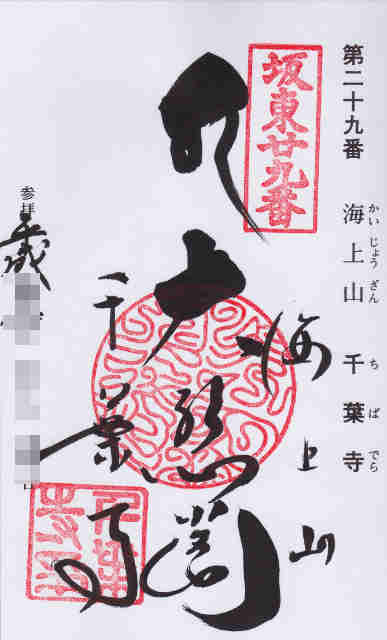 第二十九番 海上山 千葉寺
かいじょうざん ちばでら
坂東廿九番
海上山
大悲閣
千葉寺
参拝